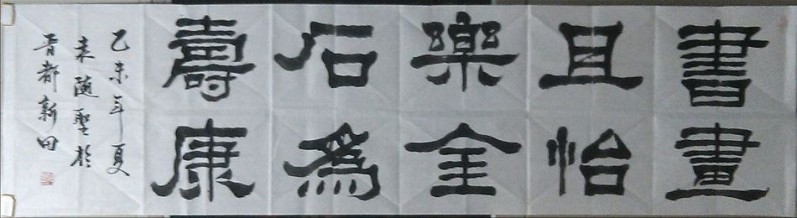 書畫
且怡
樂金
石為
壽康
乙未年夏
袁隨聖於
晋都新田